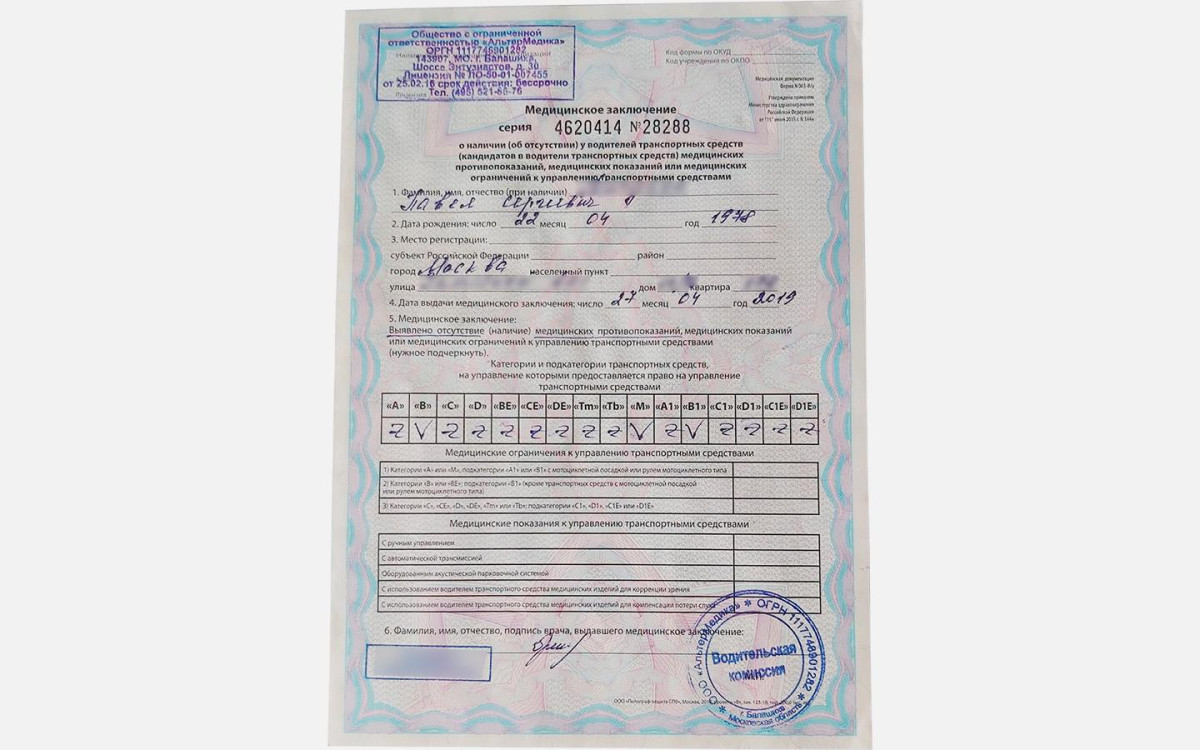 Общество с ограниченной
ответственностью «АльтерМедика»
ОГРН 1117746901282
143907, МО, г. Балашиха,
Шоссе Энтузиастов, д. 30
Лицензия № ЛО-50-01-007455
от 25.02.16 срок действия: бессрочно
Тел. (495) 521-88-76
Код формы по ОКУД
Код учреждения по ОКПО
Медицинская документация
Форма N 003-В/у
Утверждена приказом
Министерства здравоохранения
Российской Федерации
от "15" июня 2015 г. N 344н
Медицинское заключение
серия 4620414 №28288
о наличии (об отсутствии) у водителей транспортных средств
(кандидатов в водители транспортных средств) медицинских
противопоказаний, медицинских показаний или медицинских
ограничений к управлению транспортными средствами
1. Фамилия, имя, отчество (при наличии)
Павел Сергеевич
2. Дата рождения: число 22 месяц 04 год 1978
3. Место регистрации:
субъект Российской Федерации район
город Москва населенный пункт
улица дом квартира
4. Дата выдачи медицинского заключения: число 27 месяц 04 год 2019
5. Медицинское заключение:
Выявлено отсутствие (наличие) медицинских противопоказаний, медицинских показаний
или медицинских ограничений к управлению транспортными средствами
(нужное подчеркнуть).
Категории и подкатегории транспортных средств,
на управление которыми предоставляется право на управление
транспортными средствами
«A» «B» «C» «D» «BE» «CE» «DE» «Tm» «Tb» «M» «A1» «B1» «C1» «D1» «C1E» «D1E»
Z V Z Z Z Z Z Z Z V Z V Z Z Z Z
Медицинские ограничения к управлению транспортными средствами
1) Категории «А» или «М», подкатегории «А1» или «В1» с мотоциклетной посадкой или рулем мотоциклетного типа
2) Категории «В» или «ВЕ»; подкатегории «В1» (кроме транспортных средств с мотоциклетной посадкой
или рулем мотоциклетного типа)
3) Категории «С», «СЕ», «D», «DE», «Tm» или «Tb»; подкатегории «C1», «D1», «C1E» или «D1E»
Медицинские показания к управлению транспортными средствами
С ручным управлением
С автоматической трансмиссией
Оборудованным акустической парковочной системой
С использованием водителем транспортного средства медицинских изделий для коррекции зрения
С использованием водителем транспортного средства медицинских изделий для компенсации потери слуха
6. Фамилия, имя, отчество, подпись врача, выдавшего медицинское заключение:
ООО «АльтерМедика» * ОГРН 1117746901282 *
Водительская
комиссия
г. Балашиха
Московская область